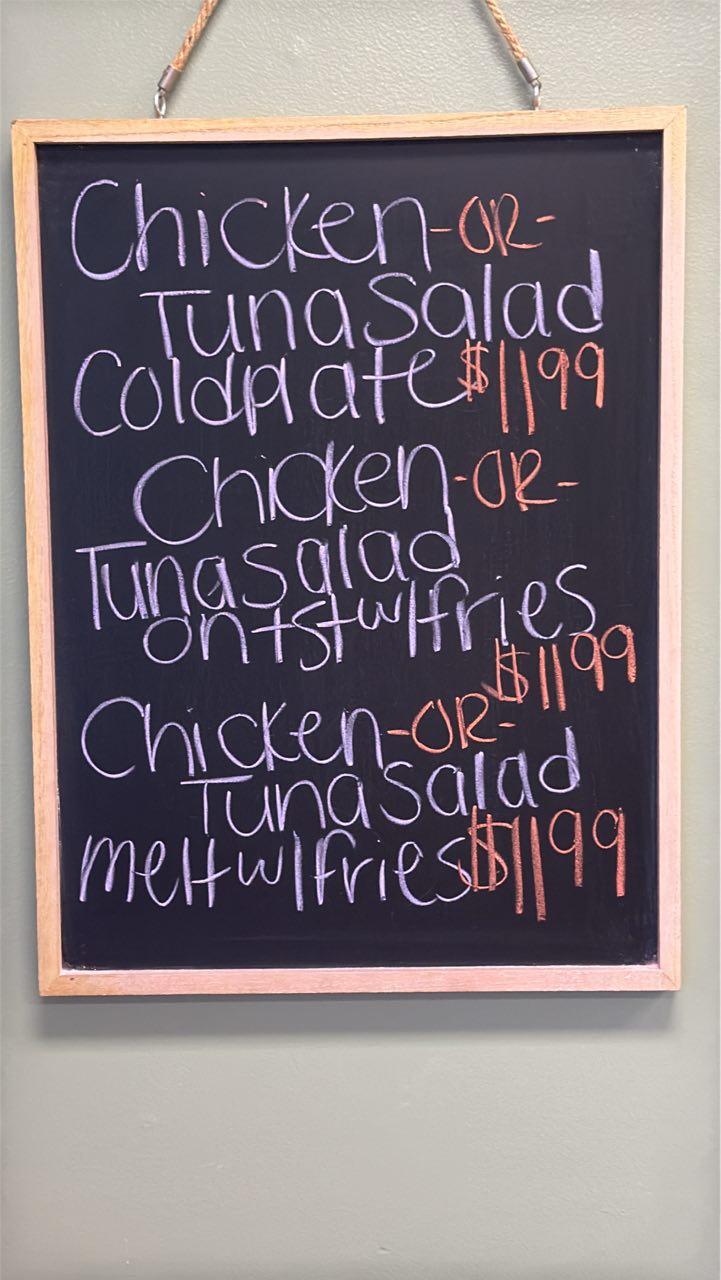 Chicken -OR-
Tuna Salad
Coldplate $1199
Chicken -OR-
Tuna salad
on tst w/fries
$1199
Chicken -OR-
Tuna salad
melt w/fries $1199